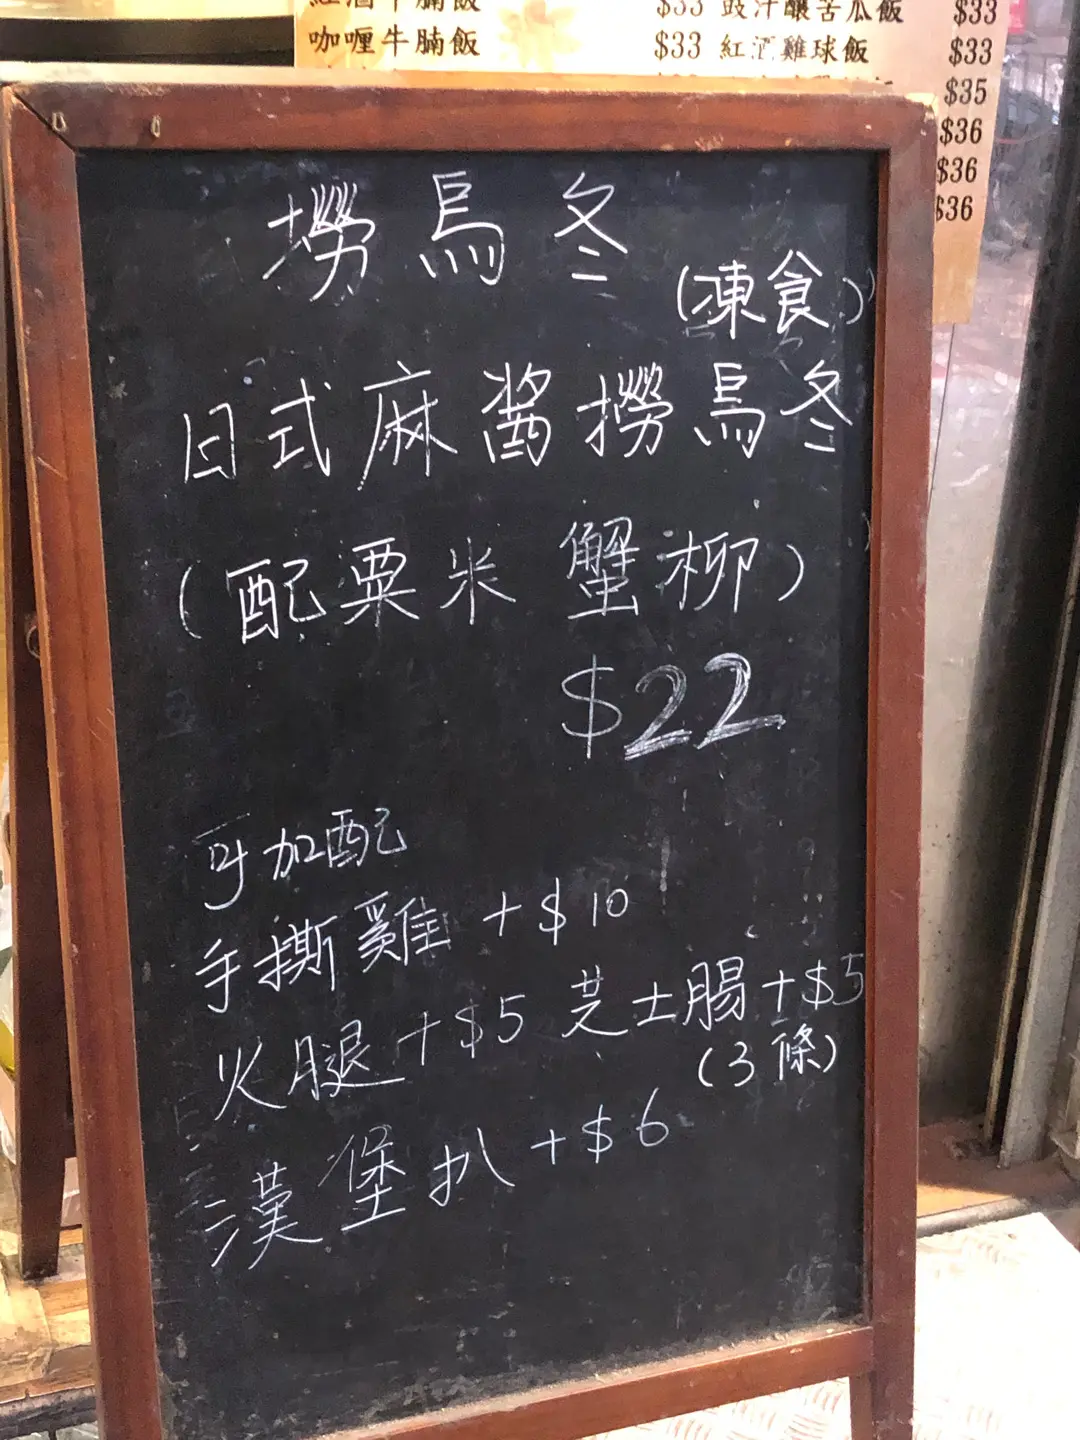 咖喱牛腩飯 $33
豉汁釀苦瓜飯 $33
紅酒雞球飯 $33
$35
$36
$36
$36
撈烏冬
(凍食)
日式麻醬撈烏冬
(配粟米 蟹柳)
$22
可加配
手撕雞 +$10
火腿+$5 芝士腸+$5
(3條)
漢堡扒+$6